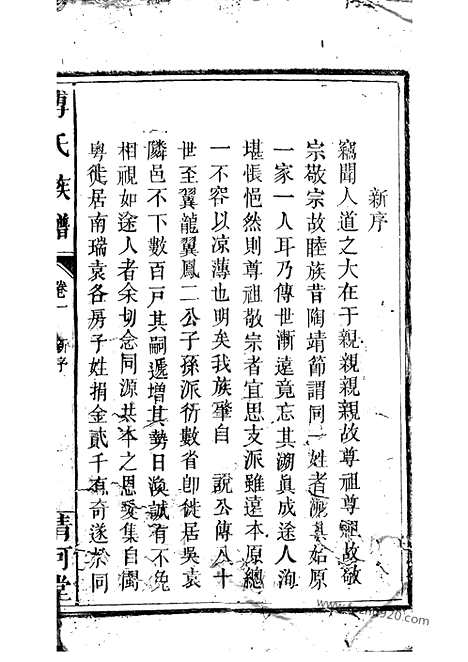 新序
竊聞人道之大在于親親親親故尊祖尊祖故敬
宗敬宗故睦族昔陶靖節謂同一姓者溯其始原
一家一人耳乃傳世漸遠竟忘其溯眞成途人洵
堪悵悒然則尊祖敬宗者宜思支派雖遠本原總
一不容以凉薄也明矣我族肇自 說公傳八十
世至翼龍翼鳳二公子孫派衍數省卽徙居吳袁
隣邑不下數百戸其嗣遞增其勢日渙誠有不免
相視如途人者余切念同源共本之恩爰集自閩
粵徙居南瑞袁各房子姓捐金貳千有奇遂於同
傅氏族譜
卷一 新序
清河堂